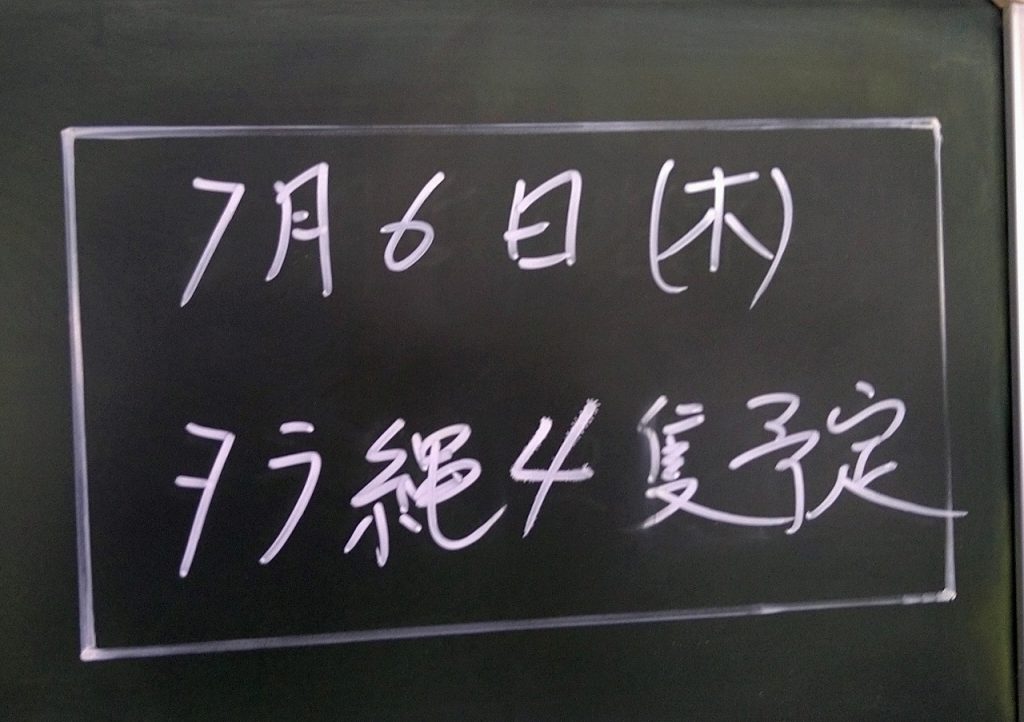 7月6日(木)
タラ縄4隻予定